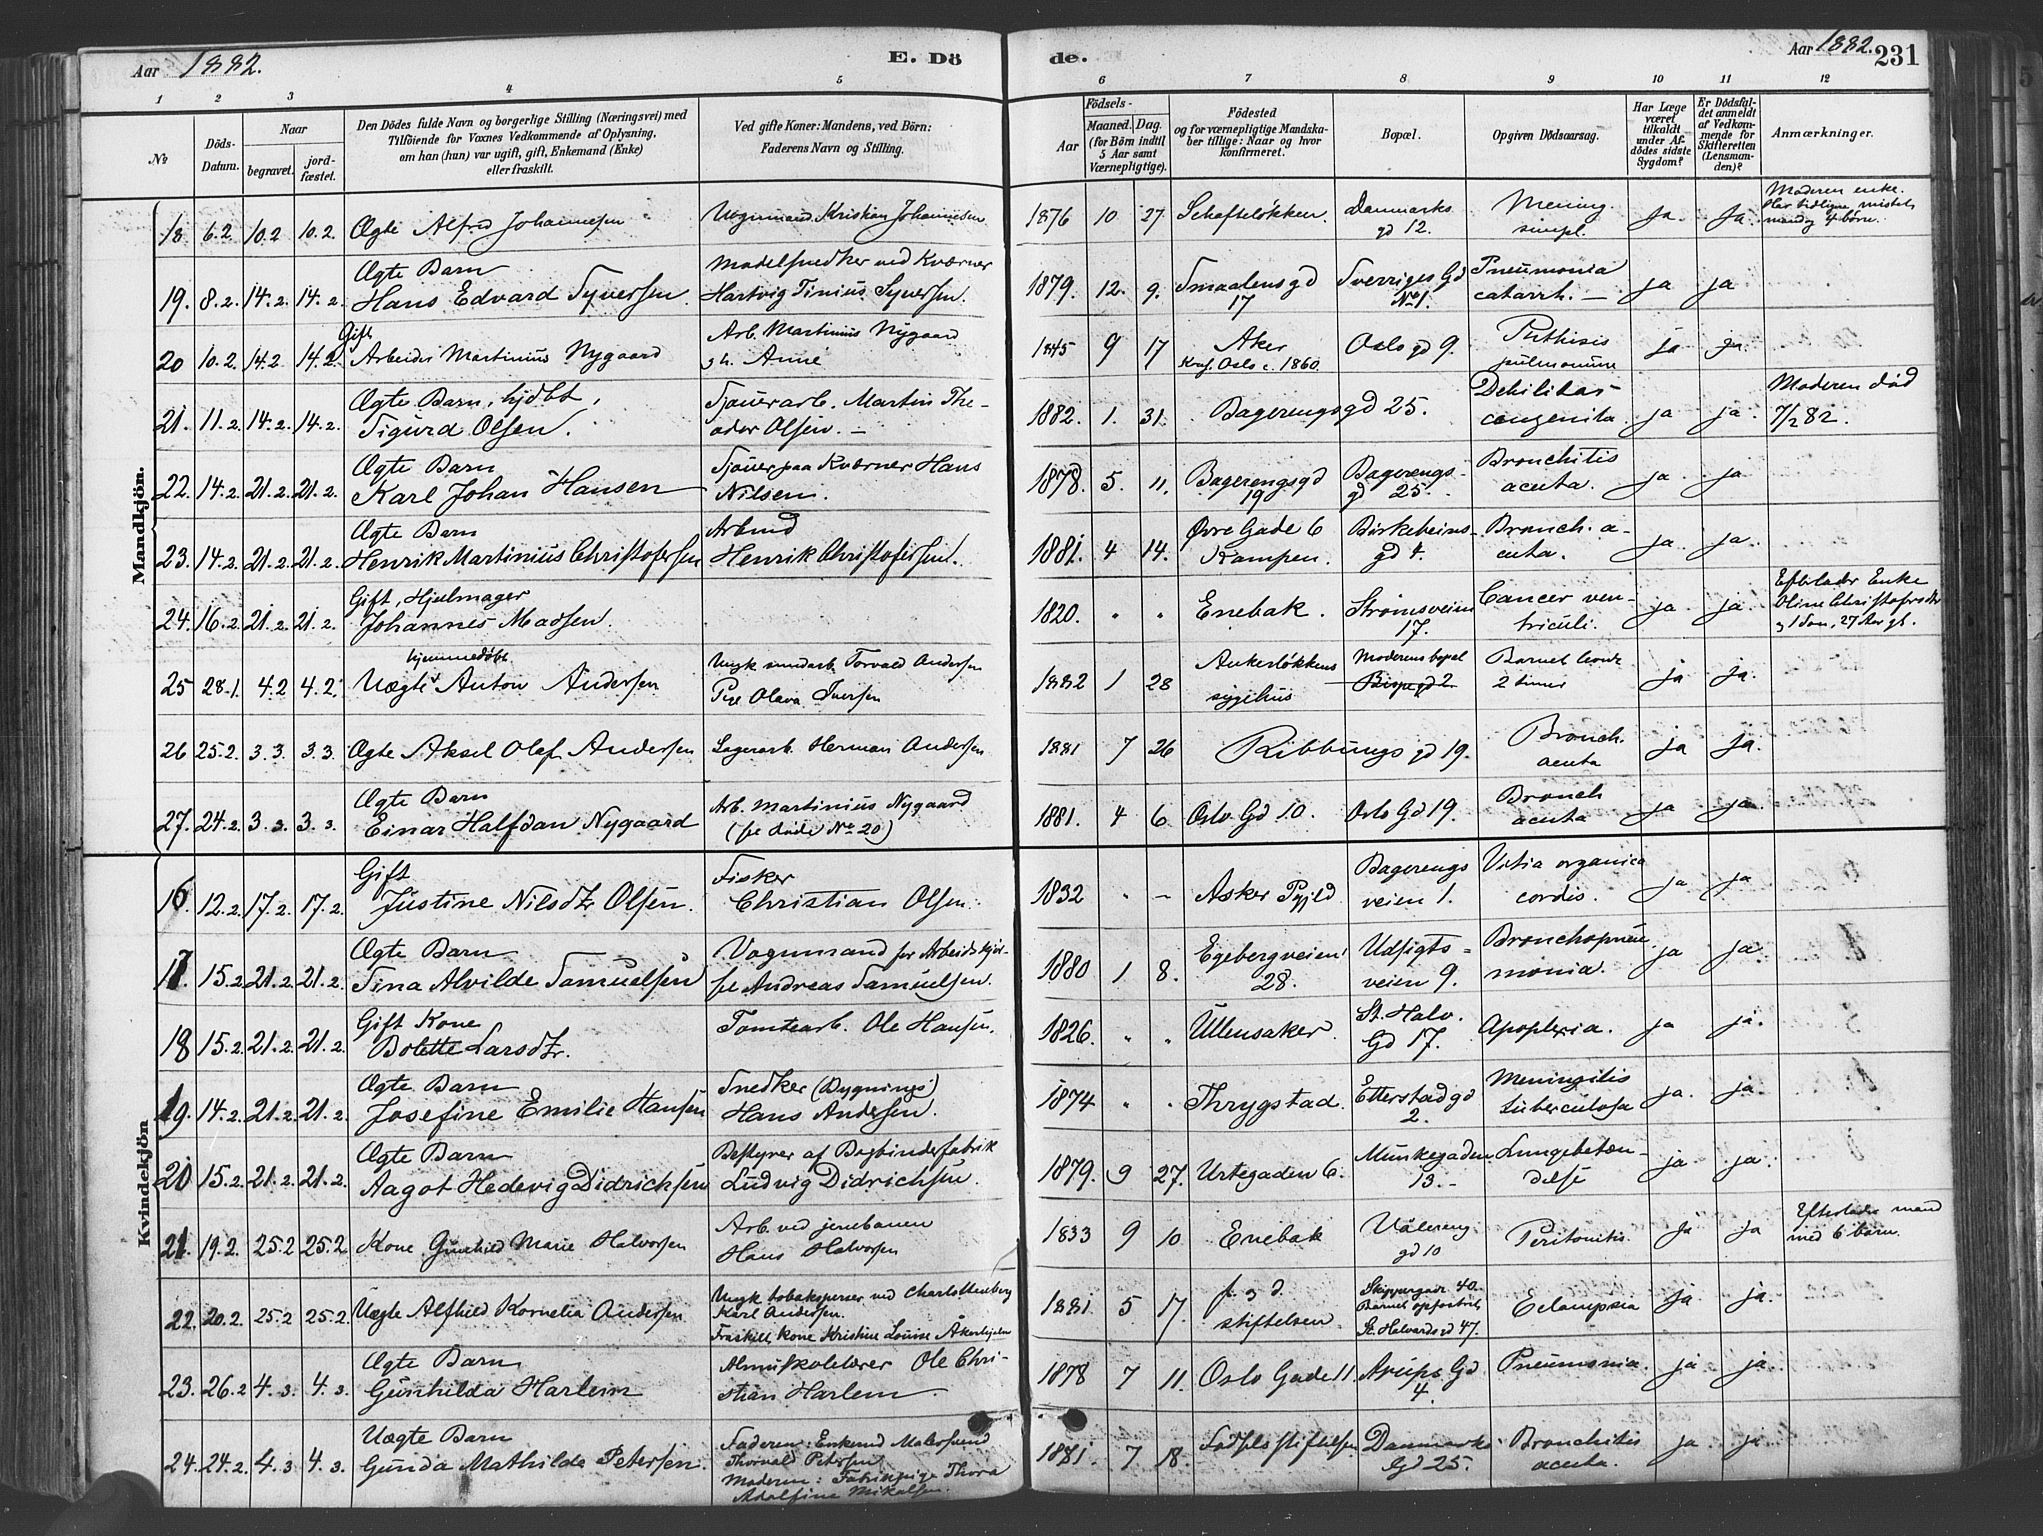 Aar 1882.
E. Dö
de.
Aar 1882.
231
1 2 3 4 5 6 7 8 9 10 11 12
No
Döds-Datum.
Naar
begravet.
jord-fæstet.
Den Dödes fulde Navn og borgerlige Stilling (Næringsvei) med
Tilföiende for Voxnes Vedkommende af Oplysning,
om han (hun) var ugift, gift, Enkemand (Enke)
eller fraskilt.
Ved gifte Koner: Mandens, ved Börn:
Faderens Navn og Stilling.
Födsels-
Aar
Maaned. Dag.
(for Börn indtil
5 Aar samt
Værnepligtige).
Födested
og for værnepligtige Mandska-
ber tillige: Naar og hvor
konfirmeret.
Bopæl.
Opgiven Dödsaarsag.
Har Læge
været
tilkaldt
under Af-
dödes sidste
Sygdom?
Er Dödsfal-
det anmeldt
af Vedkom-
mende for
Skifteretten
(Lensman-
den)?
Anmærkninger.
Mandkjön.
18 6.2 10.2 10.2 Ægte Alfred Johannesen Vognmand Kristian Johannesen 1876 10 27 Schafteløkken Danmarks gd 12. Mening. simpl. Ja Ja. Moderen enke. Har tidligere mistet mand og 4 børn.
19. 8.2 14.2. 14.2. Ægte Barn Hans Edvard Syversen. Modelsnedker ved Kværner Hartvig Tinius Syversen. 1879. 12. 9. Smaalensgd 17 Sverriges Gd No 1. Pneumonia catarrh. — ja ja
20 10.2. 14.2 14.2 Gift Arbeider Martinius Nygaard Arb. Martinius Nygaard o h. Anne 1845 9 17 Aker Konf. Oslo c. 1860. Oslo gd 9. Phthisis pulmonum ja ja
21. 11.2. 14.2. 14.2. Ægte Barn, hjdbt, Sigurd Olsen. Sjouerarb. Martin Theodor Olsen. — 1882. 1. 31. Bagerengsgd 25. Debilitas congenita. ja ja. Moderen död 7/2 82.
22. 14.2. 21.2. 21.2. Ægte Barn Karl Johan Hansen Sjouer paa Kværner Hans Nilsen. 1878. 5. 11. Bagerengsgd 19 Bagerengsgd 25. Bronchitis acuta. ja ja
23. 14.2. 21.2. 21.2. Ægte Barn Henrik Martinius Christofersen Arbmd Henrik Christofersen. 1881. 4 14. Øvre Gade 6 Kampen. Birkebeinsgd 4. Bronch. acuta. ja ja.
24. 16.2. 21.2. 21.2. Gift, Hjulmager Johannes Madsen. 1820. " " Enebak. Strömsveien 17. Cancer ventriculi. ja ja. Efterlader Enke Oline Christofersdtr og 1 Søn, 27 Aar gl.
25 28.1. 4.2 4.2. hjemmedøbt Uægte Anton Andersen Ungk murarb. Torvald Andersen Pige Olava Iversen 1882 1 28 Ankerløkkens sygehus Moderens bopæl Bispegd 2. Barnet levde 2 timer ja ja.
26 25.2. 3.3. 3.3. Ægte Aksel Olaf Andersen Lagerarb. Herman Andersen 1881 7 26 Ribbungs gd 19. Bronch. acuta ja Ja.
27. 24.2. 3.3. 3.3. Ægte Barn Einar Halfdan Nygaard Arb. Martinius Nygaard (se døde No 20) 1881. 4 6 Oslo Gd 10. Oslo Gd 19. Bronch acuta ja ja.
Kvindekjön
16. 12.2. 17.2. 17.2. Gift Justine Nilsdtr Olsen. Fisker Christian Olsen. 1832 " — Asker Pgjld Bagerengsveien 1. Vitia organica cordis. ja ja
17. 15.2. 21.2. 21.2. Ægte Barn Tina Alvilde Samuelsen Vognmand for Arbeidskjörsel Andreas Samuelsen. 1880 1 8. Egebergveien 28. Udsigtsveien 9. Bronchopneumonia. ja ja.
18 15.2. 21.2. 21.2. Gift Kone Bolette Larsdtr. Tomtearb. Ole Hansen. 1826. " " Ullensaker. St. Halv. Gd 17. Apoplexia. ja ja.
19. 14.2. 21.2. 21.2. Ægte Barn Josefine Emilie Hansen Snedker (Bygnings) Hans Andersen. 1874 " " Thrygstad. Etterstadgd 2. Meningitis tuberculosa ja. ja.
20 15.2. 21.2. 21.2. Ægte Barn Aagot Hedevig Didrichsen Bestyrer af Bogbinderfabrik Ludvig Didrichsen. 1879. 9 27. Urtegaden 6. Munkegaden 13. — Lungebetændelse ja ja.
21. 19.2. 25.2 25.2. Kone Gunhild Marie Halvorsen Arb. ved jernbanen Hans Halvorsen 1833 9 10 Enebak Vålereng gd 10 Peritonitis. ja ja Efterlader mand med 6 børn.
22. 20.2. 25.2 25.2. Uægte Alfhild Kornelia Andersen Ungk tobakspinner ved Charlottenberg Karl Andersen. Fraskilt kone Kristine Louise Åkerhjelm 1881 5 17. f. o d. stiftelsen Skippergade 40. Barnet opfostret St. Halvardsgd 47. Eclampsia Ja Ja.
23. 26.2 4.3. 4.3. Ægte Barn Gunhilda Harlem Almuskolelærer Ole Christian Harlem 1878 7 11. Oslo Gade 11 Arups Gd 4. Pneumonia. ja ja.
24. 24.2. 4.3 4.3. Uægte Barn Gunda Mathilde Petersen. Faderen: Enkemd Malersvend Thorvald Petersen Moderen: Fabrikpige Thora Adolfine Mikalsen. 1881 7 18. Födselsstiftelsen Danmarks Gd 25. Bronchitis acuta. ja ja